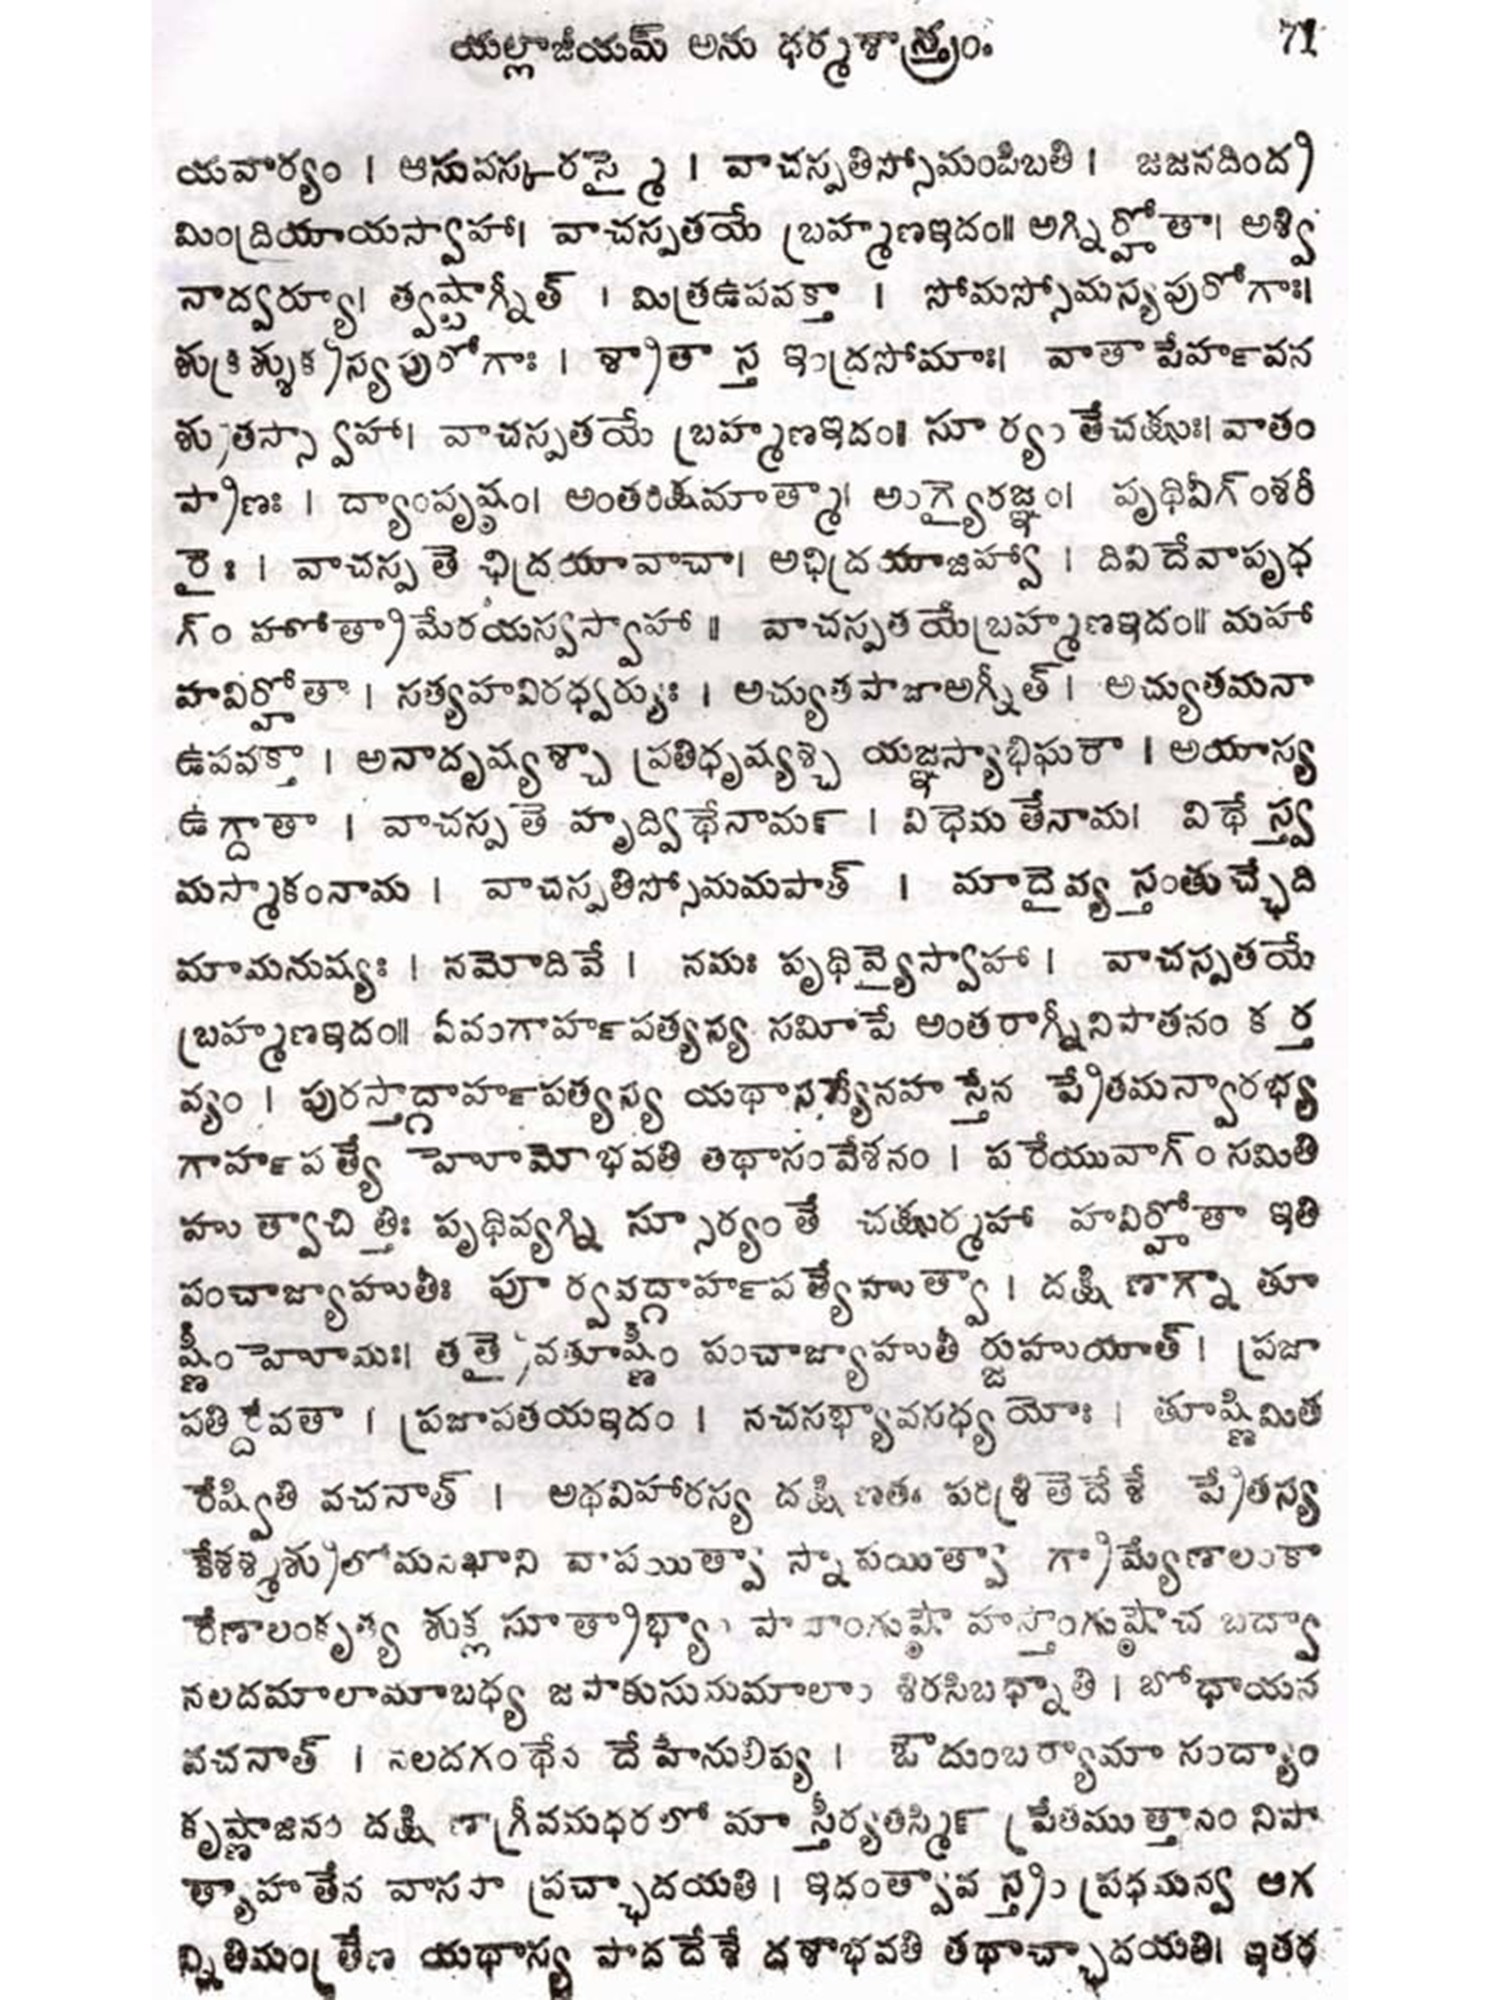 యల్లాజీయమ్ అను ధర్మశాస్త్రం. 71
యవార్యం । ఆసువస్కరస్మై । వాచస్పతిస్సోమంపిబతి । జజనదింద్ర
మింద్రియాయస్వాహా। వాచస్పతయే బ్రహ్మణఇదం॥ అగ్నిర్హోతా। అశ్వి
నాద్వర్యూ। త్వష్టాగ్నీత్ । మిత్రఉపవక్తా । సోమస్సోమస్యపురోగాః।
శుక్రశ్శుక్రస్యపురోగాః । శ్రాతా స్త ఇంద్రసోమాః। వాతా పేర్హవన
శ్రుతస్స్వాహా। వాచస్పతయే బ్రహ్మణఇదం॥ సూర్యం తేచక్షుః। వాతం
ప్రాణః । ద్యాంపృష్ఠం। అంతరిక్షమాత్మా। అంగ్యైరజ్ఞం। పృథివీగ్ంశరీ
రైః । వాచస్ప తె ఛిద్రయావాచా। అఛిద్రయాజిహ్వా । దివి దేవాపృధ
గ్ం హోత్రామేరయస్వస్వాహా ॥ వాచస్పతయేబ్రహ్మణఇదం॥ మహా
హవిర్హోతా । సత్యహవిరధ్వర్యుః । అచ్యుతపాజాఅగ్నీత్ । అచ్యుతమనా
ఉపవక్తా । అనాదృష్యశ్చా ప్రతిధృష్యశ్చ యజ్ఞస్యాభిఘరా । అయాస్య
ఉగ్దాతా । వాచస్ప తె హృద్విథేనామ౯ । విధెమ తేనామ। విథే స్త్వ
మస్మాకంనామ । వాచస్పతిస్సోమమపాత్ । మాదైవ్య స్తంతుచ్ఛేది
మామనుష్యః । నమోదివే । నమః పృథివ్యైస్వాహా । వాచస్పతయే
బ్రహ్మణఇదం॥ ఏవంగార్హపత్యస్య సమీపే అంతరాగ్నీనిపాతనం కర్త
వ్యం । పురస్తాద్గార్హపత్యస్య యథా నహస్తేన ప్రేతమన్వారభ్య
గార్హపత్యే హోమోభవతి తథాసంవేశనం । పరేయువాగ్ం సమితి
హుత్వాచిత్తిః పృథివ్యగ్ని స్సూర్యంతే చక్షుర్మహా హవిర్హోతా ఇతి
పంచాజ్యాహుతీః పూర్వవద్గార్హపత్యేహుత్వా । దక్షిణాగ్నా తూ
ష్ణీంహోమః। తత్రైవతూష్ణీం పంచాజ్యాహుతీ ర్జుహుయాత్ । ప్రజా
పతిర్దేవతా । ప్రజాపతయఇదం । నచసభ్యావసధ్యయోః । తూష్ణిమిత
రేష్వితి వచనాత్ । అథవిహారస్య దక్షిణతః పరిశ్రితెదేశే ప్రేతస్య
కేశశ్మశ్రులోమనఖాని వాపయిత్వా స్నాపయిత్వా గ్రామ్యేణాలంకా
రేణాలంకృత్య శుక్ల సూత్రాభ్యాం పాదాంగుష్ఠౌ హస్తాంగుష్ఠౌచ బద్వా
నలదమాలామాబధ్య జపాకుసుమమాలాం శిరసిబధ్నాతి । బోధాయన
వచనాత్ । నలదగంథేన దేహేనులిప్య । ఔదుంబర్యామాసంద్యాం
కృష్ణాజినం దక్షిణాగ్రీవమధరలోమాస్తీర్యతస్మి౯ ప్రేతముత్తానం నిపా
త్యాహతేన వాససా ప్రచ్ఛాదయతి । ఇదంత్వావస్త్రం ప్రధమన్వ ఆగ
న్నితిమంత్రేణ యథాస్య పాదదేశే దశాభవతి తథాచ్ఛాదయతి। ఇతర